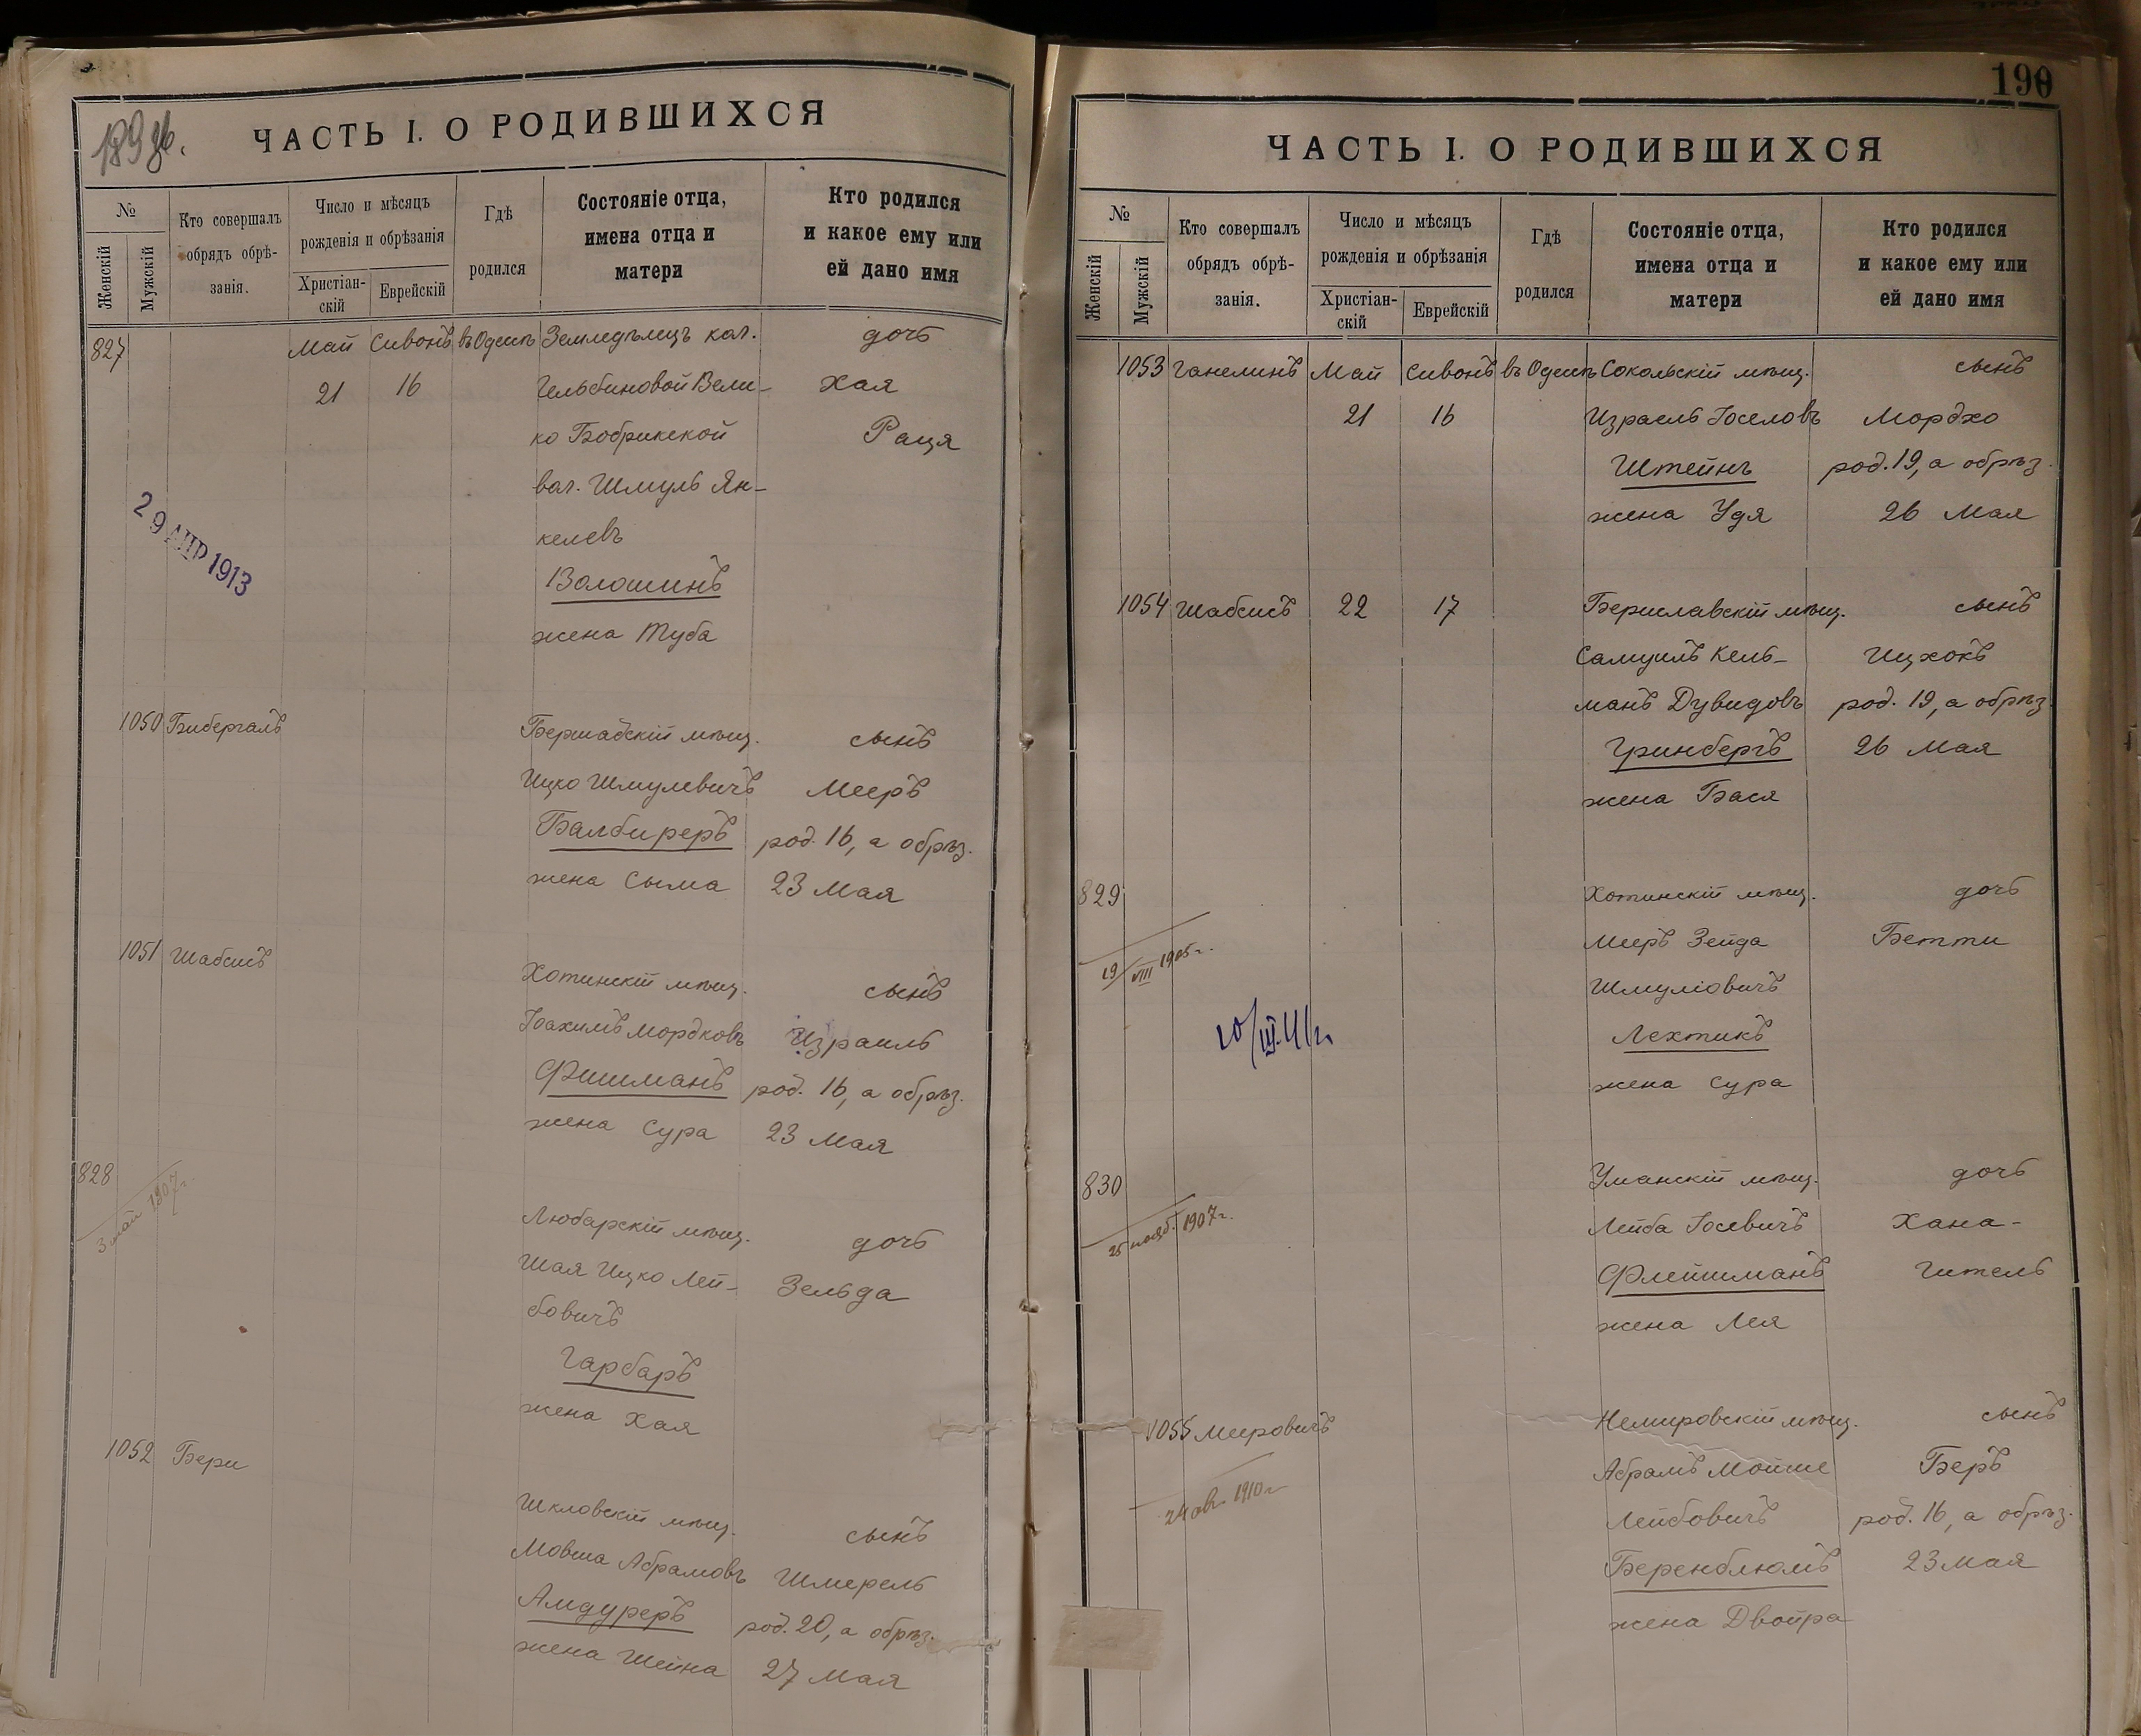 189
ЧАСТЬ I. О РОДИВШИХСЯ
№
Женскій
Мужскій
Кто совершалъ
обрядъ обрѣ-
занія.
Число и мѣсяцъ
рожденія и обрѣзанія
Христіан-
скій
Еврейскій
Гдѣ
родился
Состояніе отца,
имена отца и
матери
Кто родился
и какое ему или
ей дано имя
827 Май Сивонъ въ Одессѣ Земледѣлецъ кол. дочь
21 16 Гельбиновой Вели- Хая
ко Бобрикской Рася
вол. Шмуль Ян-
келевъ
Волошинъ
жена Туба
29 АПР 1913
1050 Бибергалъ Бершадскій мѣщ. сынъ
Ицко Шмулевичъ Мееръ
Балбиреръ род. 16, а обрѣз.
жена Сыма 23 Мая
1051 Шабсисъ Хотинскій мѣщ. сынъ
Іоахимъ Мордковъ Израиль
Фишманъ род. 16, а обрѣз.
жена Сура 23 Мая
828 Любарскій мѣщ. дочь
3 май 1907г.
Шая Ицко Лей- Зельда
бовичъ
Гарбаръ
жена Хая
1052 Бери Шкловскій мѣщ. сынъ
Мовша Абрамовъ Шмерель
Амдуреръ род. 20, а обрѣз.
жена Шейна 27 Мая
190
ЧАСТЬ I. О РОДИВШИХСЯ
№
Женскій
Мужскій
Кто совершалъ
обрядъ обрѣ-
занія.
Число и мѣсяцъ
рожденія и обрѣзанія
Христіан-
скій
Еврейскій
Гдѣ
родился
Состояніе отца,
имена отца и
матери
Кто родился
и какое ему или
ей дано имя
1053 Ганелинъ Май Сивонъ въ Одессѣ Сокольскій мѣщ. сынъ
21 16 Израель Іоселовъ Мордхо
Штейнъ род. 19, а обрѣз.
жена Удя 26 Мая
1054 Шабсисъ 22 17 Бериславскій мѣщ. сынъ
Самуилъ Кель- Ицхокъ
манъ Дувидовъ род. 19, а обрѣз.
Гринбергъ 26 Мая
жена Бася
829 Хотинскій мѣщ. дочь
19/VIII 1905г.
Мееръ Зейда Бетти
Шмуліовичъ
Лехтикъ
жена Сура
830 Уманскій мѣщ. дочь
25 нояб. 1907г.
Лейба Іосевичъ Хана-
Флейшманъ Гитель
жена Лея
1055 Мееровичъ Немировскій мѣщ. сынъ
24 авг. 1910г
Абрамъ Мойше Беръ
Лейбовичъ род. 16, а обрѣз.
Беренблюмъ 23 Мая
жена Двойра